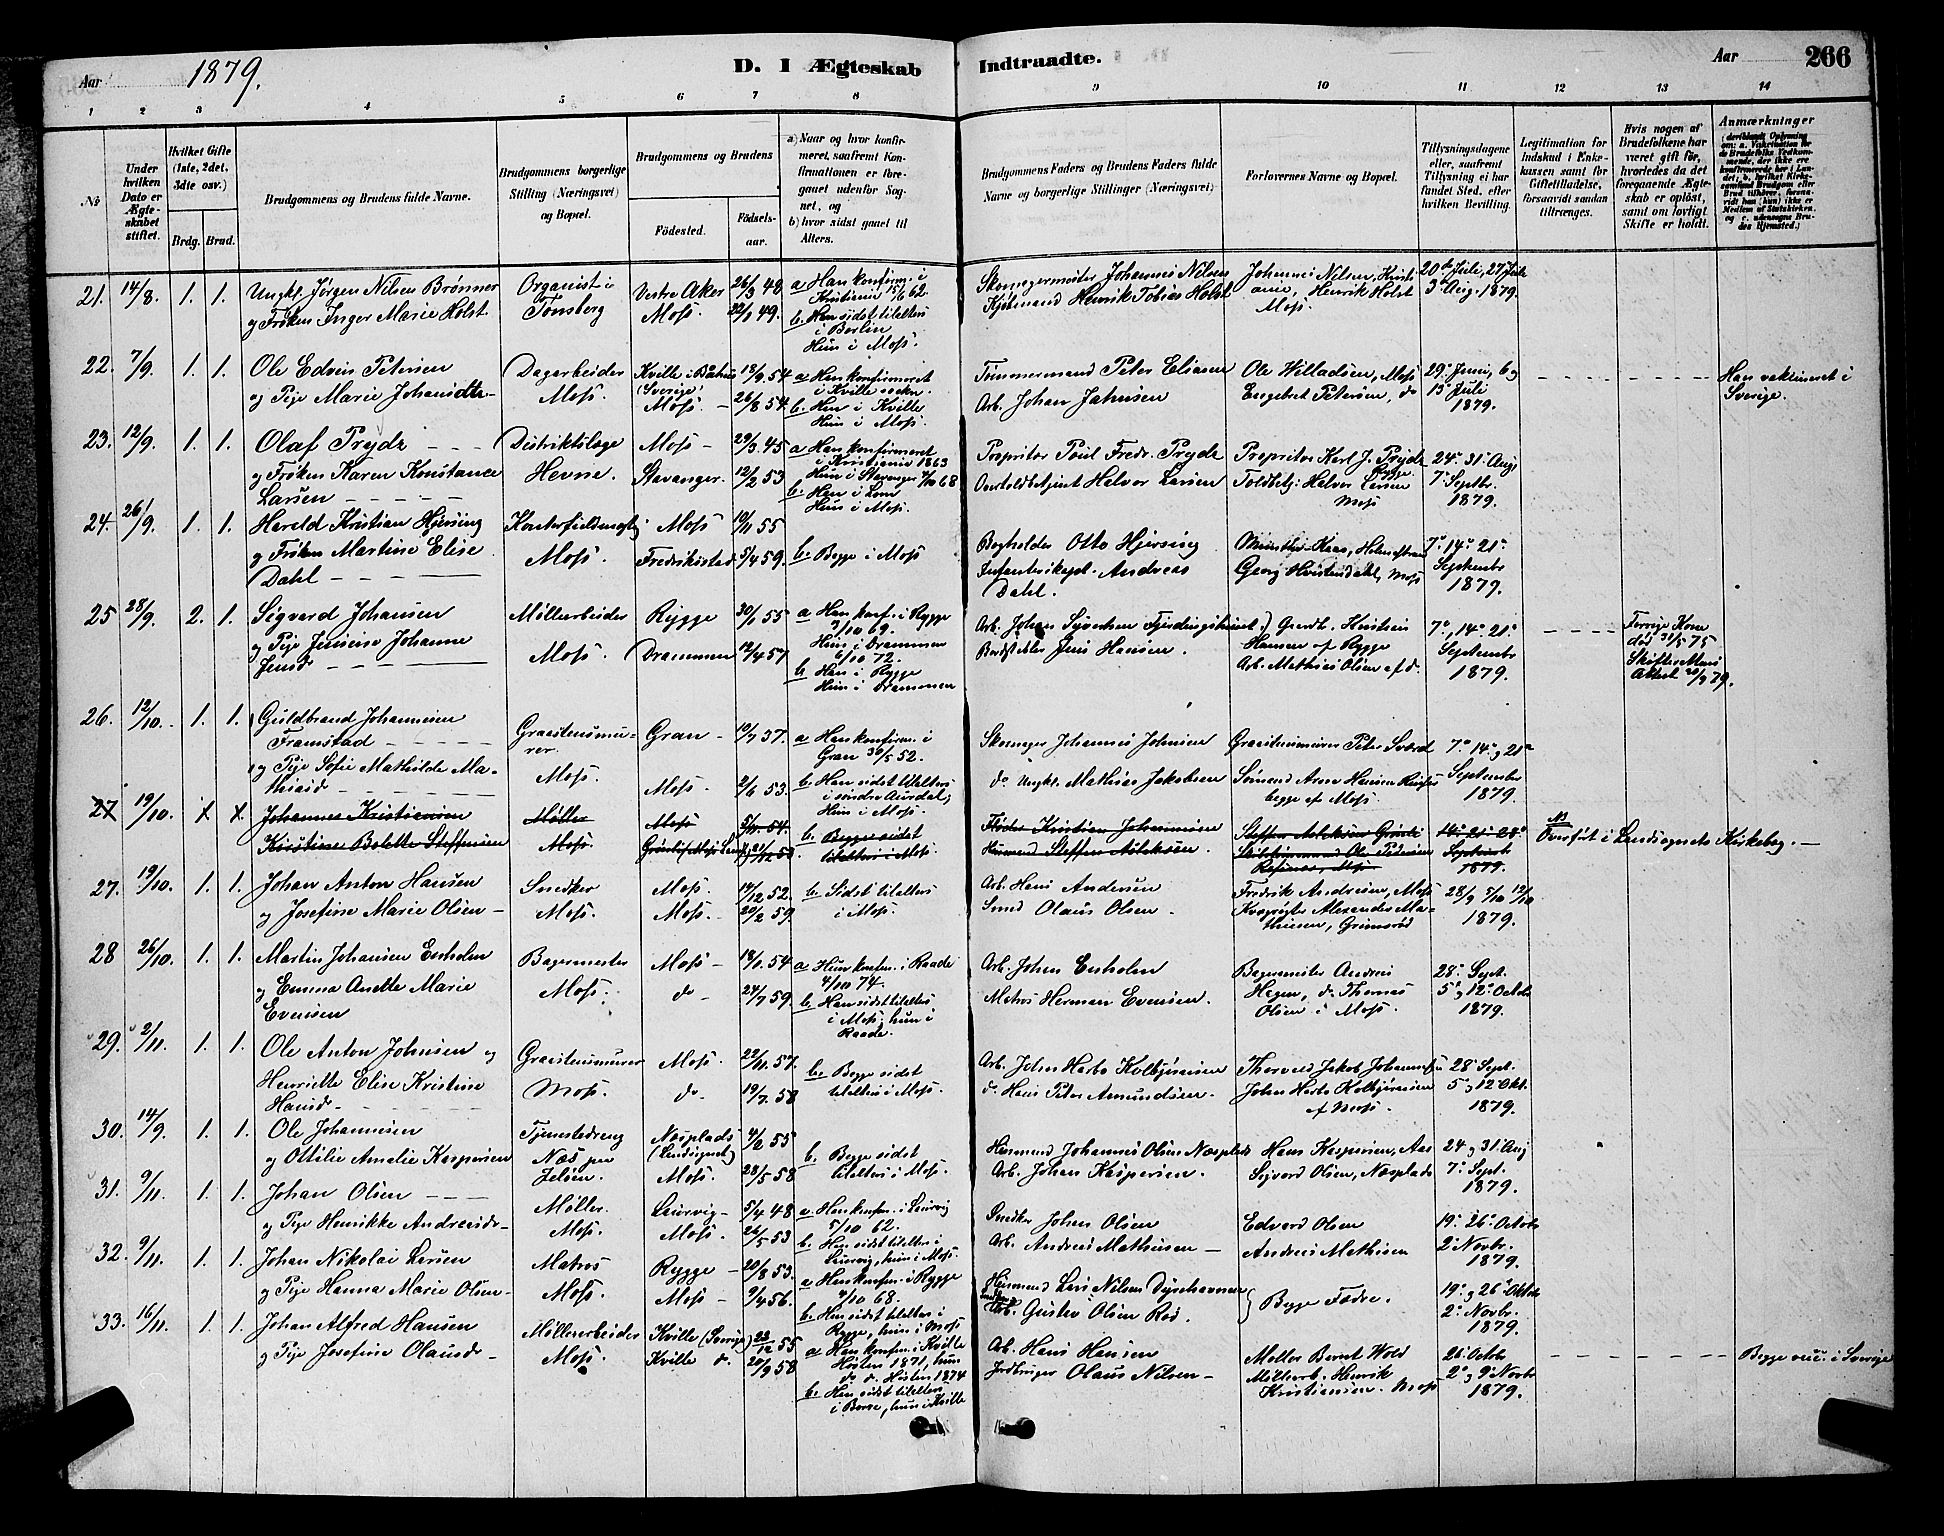 Aar 1879.
D. I Ægteskab Indtraadte.
Aar 266
1 2 3 4 5 6 7 8 9 10 11 12 13 14
No
Under hvilken Dato er Ægteskabet stiftet.
Hvilket Gifte (1ste, 2det, 3dte osv.)
Brdg. Brud.
Brudgommens og Brudens fulde Navne.
Brudgommens borgerlige Stilling (Næringsvei) og Bopæl.
Brudgommens og Brudens
Fødested. Fødselsaar.
a) Naar og hvor konfirmeret, saafremt Konfirmationen er foregaaet udenfor Sognet, og
b) hvor sidst gaaet til Alters.
Brudgommens Faders og Brudens Faders fulde Navne og borgerlige Stillinger (Næringsvei)
Forlovernes Navne og Bopæl.
Tillysningsdagene eller, saafremt Tillysning ei har fundet Sted, efter hvilken Bevilling.
Legitimation for Indskud i Enkekassen samt for Giftetilladelse, forsaavidt saadan tiltrænges.
Hvis nogen af Brudefolkene har været gift før, hvorledes da det foregaaende Ægteskab er opløst, samt om lovligt Skifte er holdt.
Anmærkninger
21. 14/8. 1. 1. Ungkl. Jørgen Nilsen Brønner
og Frøken Inger Marie Holst
Organist i Tønsberg
Vestre Aker 26/3 48
Moss. 22/1 49.
a Han konfirm. i Kristiania 15/6 62.
b. Han sidst tilalters i Berlin
Hun i Moss.
Skomagermester Johannes Nilsen
Kjøbmand Henrik Tobias Holst
Johannes Nilsen, Kristiania, Henrik Holst Moss.
20de Juli, 27 Juli 3die Aug. 1879.
22. 7/9. 1. 1. Ole Edvin Petersen
og Pige Marie Johansdtr
Dagarbeider Moss.
Kville i Båhus (Sverige) 18/9. 54
Moss. 26/8 54.
a Han konfirmeret i Kville sokn.
b. Han i Kville
Hun i Moss.
Tømmermand Peter Eliasen
Arb. Johan Jahnsen
Ole Willadsen, Moss
Engebret Petersen, do
29. Juni, 6 og 13. Juli 1879.
Han vaksineret i Sverige.
23. 12/9. 1. 1. Olaf Prydz
og Frøken Karen Konstance Larsen
Distriktslæge Hevne.
Moss 29/3. 45
Stavanger. 12/2 53
a Han konfirmeret i Kristiania 1863
Hun i Stavanger 68
b. Han i Lom
Hun i Moss.
Propritær Poul Fredr. Prydz
Overtoldbetjent Helvor Larsen
Propritær Karl J. Prydz Rygge
Toldbetj. Helvor Larsen Moss
24. 31. Aug 7. Septbr. 1879.
24. 26/9. 1. 1. Harald Kristian Hjersing
og Frøken Martine Elise Dahl
Moss.
Moss 55
Fredriksstad 5/4 59.
b. Begge i Moss
Bogholder Otto Hjersing
Andreas Dahl.
Georg Hvistendahl, Moss
7. 14. 21. September 1879.
25 28/9. 2. 1. Sigvard Johansen
og Pige Jensine Johanne Jensd.
Møllerarbeider Moss.
Rygge 30/1 55
Drammen 12/4 57.
a Han konf. i Rygge 3/10 69.
Hun i Drammen 6/10 72.
b Han i Rygge
Hun i Drammen
Arb. Johan Syversen
Jens Hansen.
Gaardb. Kristian Hansen af Rygge
Arb. Mathias Olsen af do.
7., 14. 21. September 1879.
Forrige Kone død 31/5 75
26. 12/10. 1. 1. Guldbrand Johannesen Framstad
og Pige Sofie Mathilde Mathiasd.
Graastensmurer. Moss.
Gran 37.
Moss. 2/6 53.
a Han konfirm. i Gran 30/5 52.
b. Han sidst tilalters i søndre Aurdal,
Hun i Moss.
Skomager Johannes Johnsen
do Ungkl. Mathias Jakobsen
Graastensmurer Peter Sværd
begge af Moss.
7. 14. og 21. September 1879.
27 19/10. Johannes Kristiansen
Kirstine Bolette Steffensen
Møller Moss.
Moss 54.
b. Begge sidst tilalters i Moss.
Kristian Johannesen
Husmand Steffen Aslaksen.
14. 21. 28. Septembr 1879.
Overført i Landsognets Kirkebog.
27. 19/10. 1. 1. Johan Anton Hansen
og Josefine Marie Olsen
Snedker Moss.
Moss. 14/12 52.
Moss. 20/2 59.
b. Sidst tilalters i Moss.
Arb. Hans Andersen
Smed Olaus Olsen.
Fredrik Andresen, Moss
Alexander Mathiesen, Grimsrød
28/9 5/10 12/10 1879.
28 26/10. 1. 1. Martin Johansen Enholen
og Emma Anette Marie Evensen
Bagermester Moss.
Moss 18/1. 54
do 24/7 59.
a Hun konfm. i Raade 4/10 74.
b. Han sidst tilalters i Moss, hun i Raade.
Arb. Johan Enholen
Matros Herman Evensen.
Bagermester Andreas Hagen, do Thomas Olsen i Moss.
28. Sept. 5. og 12. Octobr 1879.
29. 2/11. 1. 1. Ole Anton Johnsen og
Henriette Elise Kristine Hansd.
Graastensmurer Moss.
Moss. 22/11. 57.
do. 19/7. 58
b. Begge sidst tilalters i Moss.
Arb. John Harbo Kolbjørnsen
do. Hans Peter Amundsen.
Thorvald Jakob Johannesen
John Harbo Kolbjørnsen af Moss.
28 Sept. 5. og 12. Okt. 1879.
30. 14/9. 1. 1. Ole Johannesen
og Ottilie Amalie Kaspersen
Tjenestedreng Næs paa Jeløen.
Næsplads (Landsognet) 4/2 55
Moss. 28/5 58
b. Begge sidst tilalters i Moss.
Husmand Johannes Olsen Næsplads
Arb. Johan Kaspersen.
Hans Kaspersen, Aas
Sigvard Olsen, Næsplads
24 og 31. Aug 7. Sept. 1879.
31. 9/11. 1. 1. Johan Olsen
og Pige Henrikke Andreasdr.
Møller. Moss.
Laurvig 5/4 48
Moss. 24/5 53
a Han konfm. i Laurvig 5/10 62.
b. Han sidst tilalters i Laurvig, hun i Moss.
Snedker Johan Olsen
Arb. Andreas Mathisen
Edvard Olsen
Andreas Mathisen
19. 26. Octobr 2. Novbr. 1879.
32. 9/11. 1. 1. Johan Nikolai Larsen
og Pige Hanna Marie Olsen
Matros Moss.
Rygge 20/8 53.
Moss 9/4 56.
a Han konfm. i Rygge 4/10 68.
b. Han sidst tilalters i Rygge, hun i Moss
Husmand Lars Nilsen Dyrehavnen
Arb. Gustav Olsen Rød
Begge Fædre.
19. og 26. Oktobr 2. Novbr. 1879.
33. 16/11. 1. 1. Johan Alfred Hansen
og Pige Josefine Olausd.
Møllerarbeider Moss.
Kville (Sverige) 23/12 55
Kville do. 20/9 58
a Han konfm. i Kville Høsten 1871, hun do. d. Høsten 1874
b. Han sidst tilalters i Borre, hun i Kville
Arb. Hans Hansen
Jordbruger Olaus Nilsen
Møller Bernt Wold
Møllerarb. Henrik Kristiansen. Moss
26. Octobr 2. og 9. Novbr 1879.
Begge vac. i Sverige